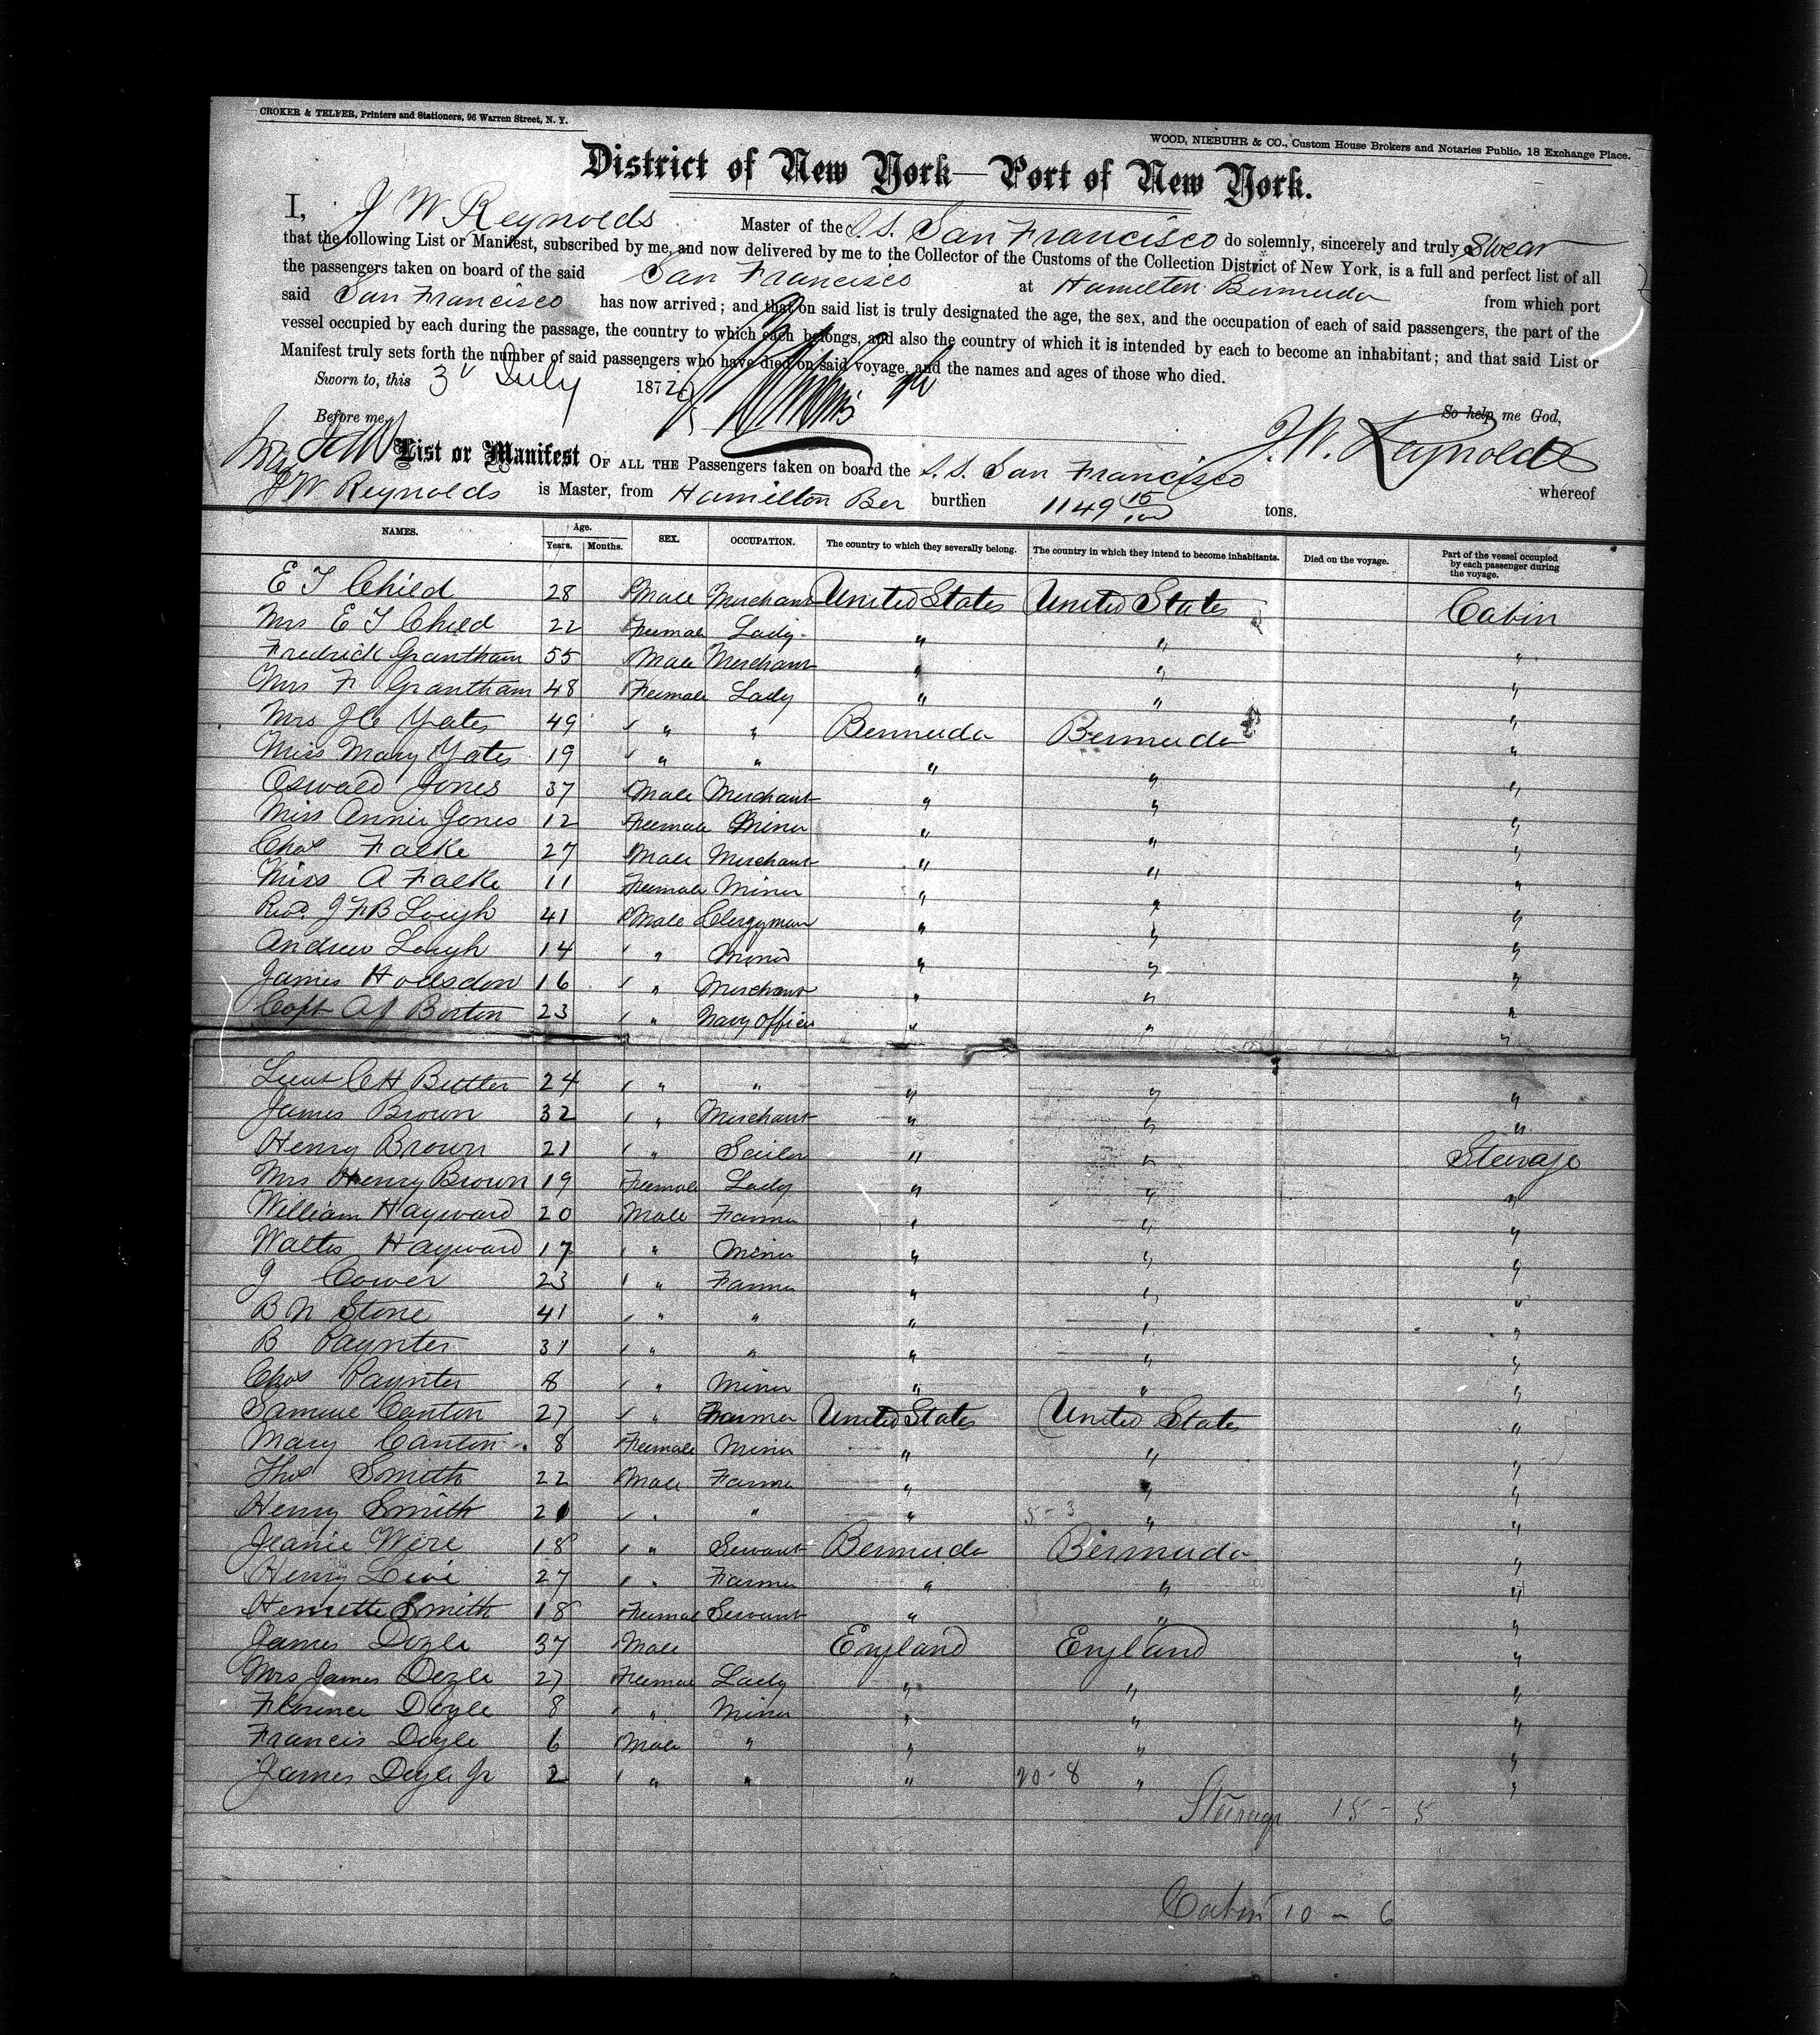 CROKER & TELFER, Printers and Stationers, 96 Warren Street, N. Y.
WOOD, NIEBUHR & CO., Custom House Brokers and Notaries Public, 18 Exchange Place.
District of New York—Port of New York.
I, J W Reynolds Master of the S.S. San Francisco do solemnly, sincerely and truly Swear
that the following List or Manifest, subscribed by me, and now delivered by me to the Collector of the Customs of the Collection District of New York, is a full and perfect list of all
the passengers taken on board of the said San Francisco at Hamilton Bermuda from which port
said San Francisco has now arrived; and that on said list is truly designated the age, the sex, and the occupation of each of said passengers, the part of the
vessel occupied by each during the passage, the country to which each belongs, and also the country of which it is intended by each to become an inhabitant; and that said List or
Manifest truly sets forth the number of said passengers who have died on said voyage, and the names and ages of those who died.
Sworn to, this 3 July 187
So help me God,
Before me,
J. W. Reynolds
List or Manifest OF ALL THE Passengers taken on board the S. S. San Francisco whereof
J W Reynolds is Master, from Hamilton Ber burthen 1149 15/100 tons.
NAMES. Age. Years. Months. SEX. OCCUPATION. The country to which they severally belong. The country in which they intend to become inhabitants. Died on the voyage. Part of the vessel occupied by each passenger during the voyage.
E T Child 28 Male Merchant United States United States Cabin
Mrs E T Child 22 Feemale Lady " " "
Fredrick Grantham 55 Male Merchant " " "
Mrs F Grantham 48 Feemale Lady " " "
Mrs J C Yates 49 " " Bermuda Bermuda "
Miss Mary Yates 19 " " " " "
Oswald Jones 37 Male Merchant " " "
Miss Annie Jones 12 Feemale Minor " " "
Chas Falke 27 Male Merchant " " "
Miss A Falke 11 Feemale Minor " " "
Revd J F B Leigh 41 Male Clergyman " " "
Andrew Leigh 14 " Minor " " "
James Hollsdon 16 " Merchant " " "
Capt A J Borton 23 " Navy Officer " " "
Lieut C H Butler 24 " " " " "
James Brown 32 " Merchant " " "
Henry Brown 21 " Sailor " " Steerage
Mrs Henry Brown 19 Feemale Lady " " "
William Hayward 20 Male Farmer " " "
Walter Hayward 17 " Minor " " "
J Cower 23 " Farmer " " "
B N Stone 41 " " " " "
B Paynter 31 " " " " "
Chas Paynter 8 " Minor " " "
Samuel Canton 27 " Farmer United States United States "
Mary Canton 8 Feemale Minor " " "
Thos Smith 22 Male Farmer " " "
Henry Smith 21 " " " 5-3 " "
Jeanie Were 18 " Servant Bermuda Bermuda "
Henry Levi 27 " Farmer " " "
Henrette Smith 18 Feemale Servant " " "
James Doyle 37 Male England England "
Mrs James Doyle 27 Feemale Lady " " "
Florence Doyle 8 " Minor " " "
Francis Doyle 6 Male " " " "
James Doyle Jr 2 " " " 20-8 " "
Steerage 15 - 5
Cabin 10 - 6